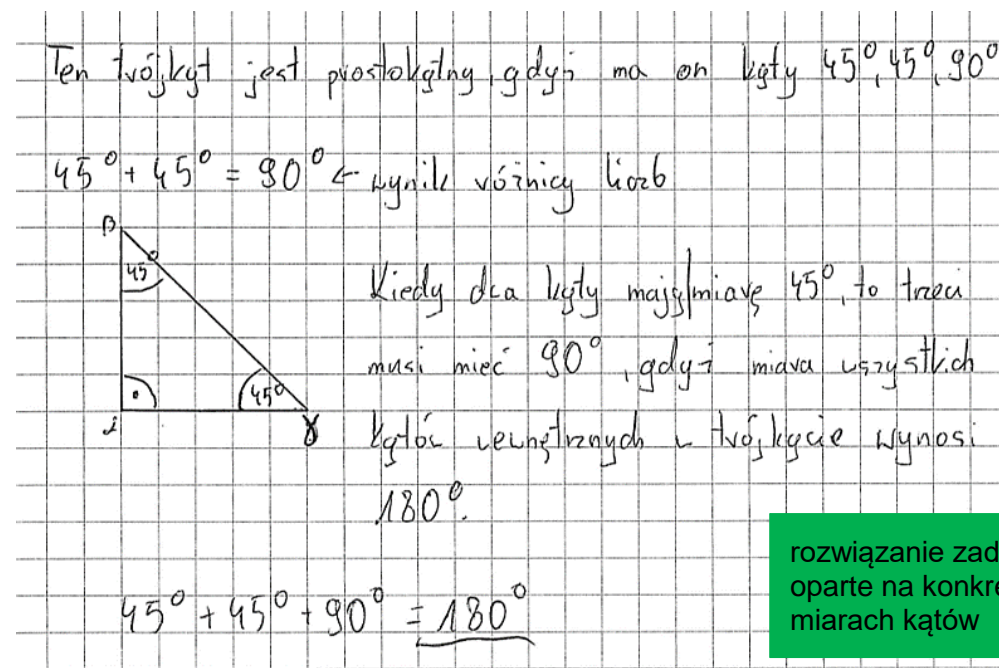 Ten trójkąt jest prostokątny, gdyż ma on kąty 45°, 45°, 90°
45° + 45° = 90° ← wynik różnicy liczb
β
45°
Kiedy dwa kąty mają miarę 45°, to trzeci
musi mieć 90°, gdyż miara wszystkich
45°
α
γ
kątów wewnętrznych w trójkącie wynosi
180°.
45° + 45° + 90° = 180°
rozwiązanie zad
oparte na konkre
miarach kątów